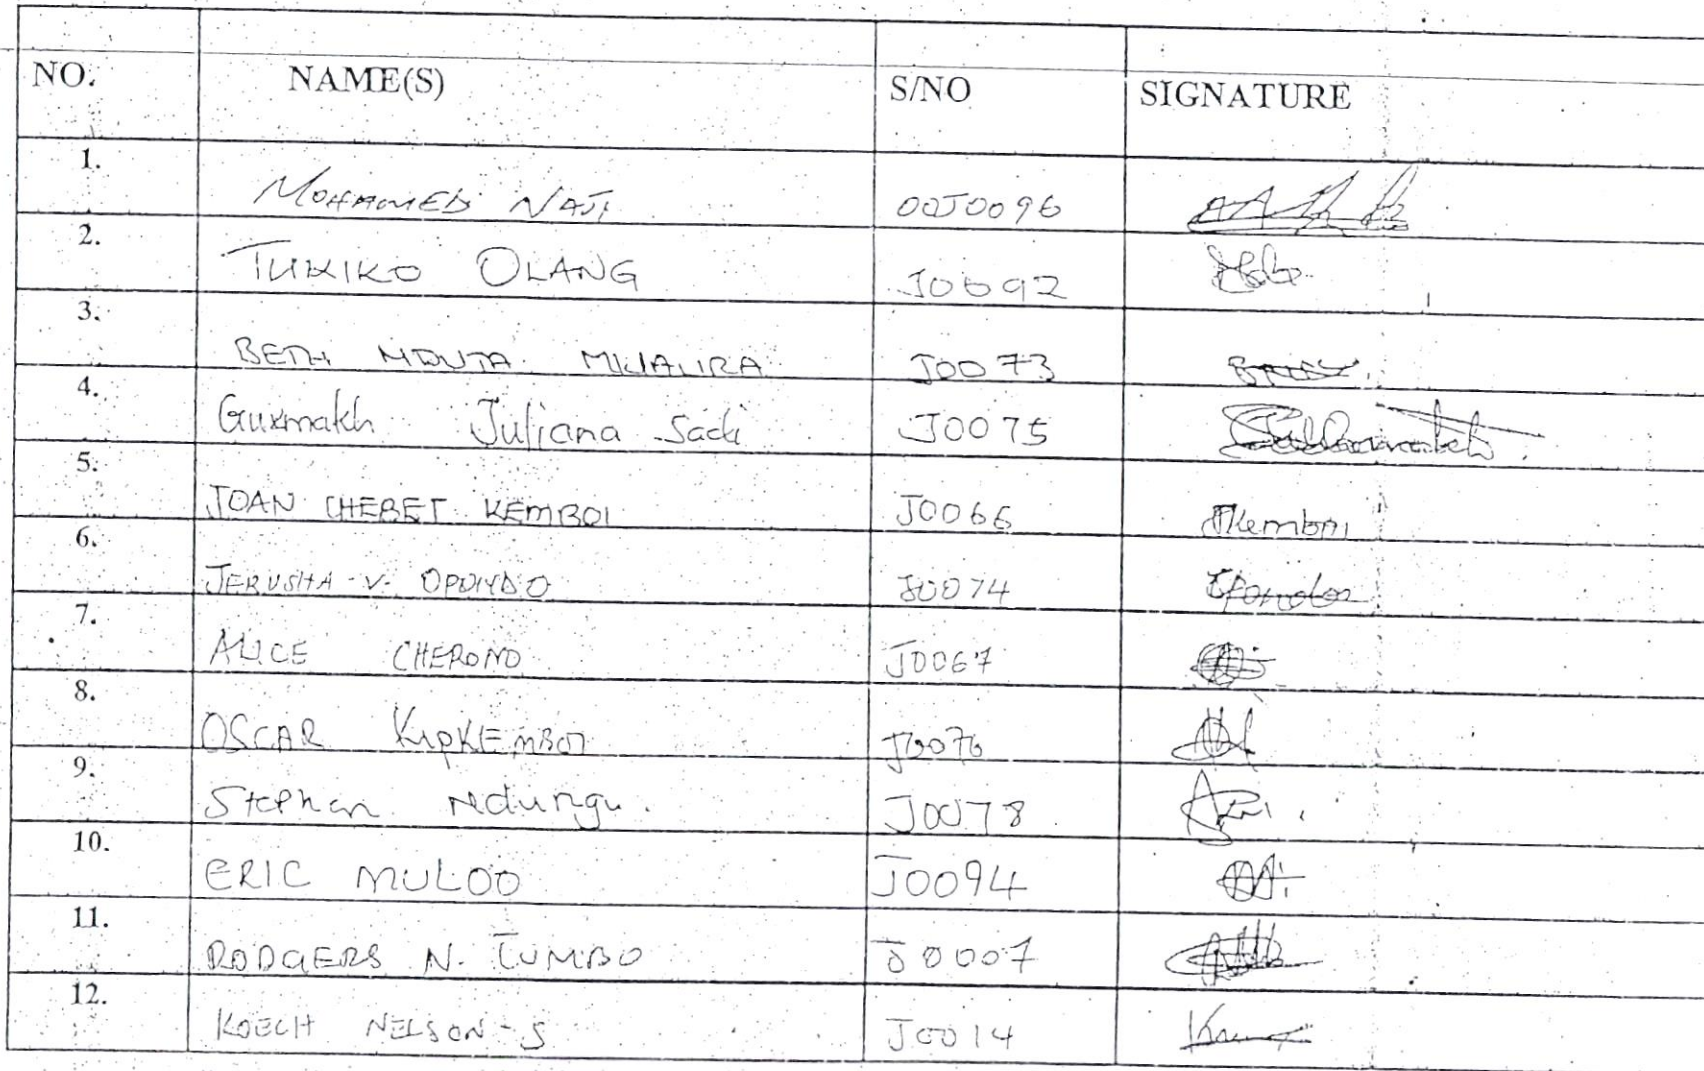 NO. NAME(S) S/NO SIGNATURE
1. MOHAMED NAJI 00J0096
2. TUKIKO OLANG J0092
3. BETH MWAURA J0073
4. Gurmakh Juliana Sadi J0075
5. JOAN CHEBET KEMBOI J0066 JKemboi
6. JERUSHA V. OPONDO J0074
7. ALICE CHERONO J0067
8. OSCAR KIPKEMBOI J0076
9. Stephen Ndungu. J0078
10. ERIC MULOO J0094
11. RODGERS N. TUMBO J0007
12. KOECH NELSON - S J0014